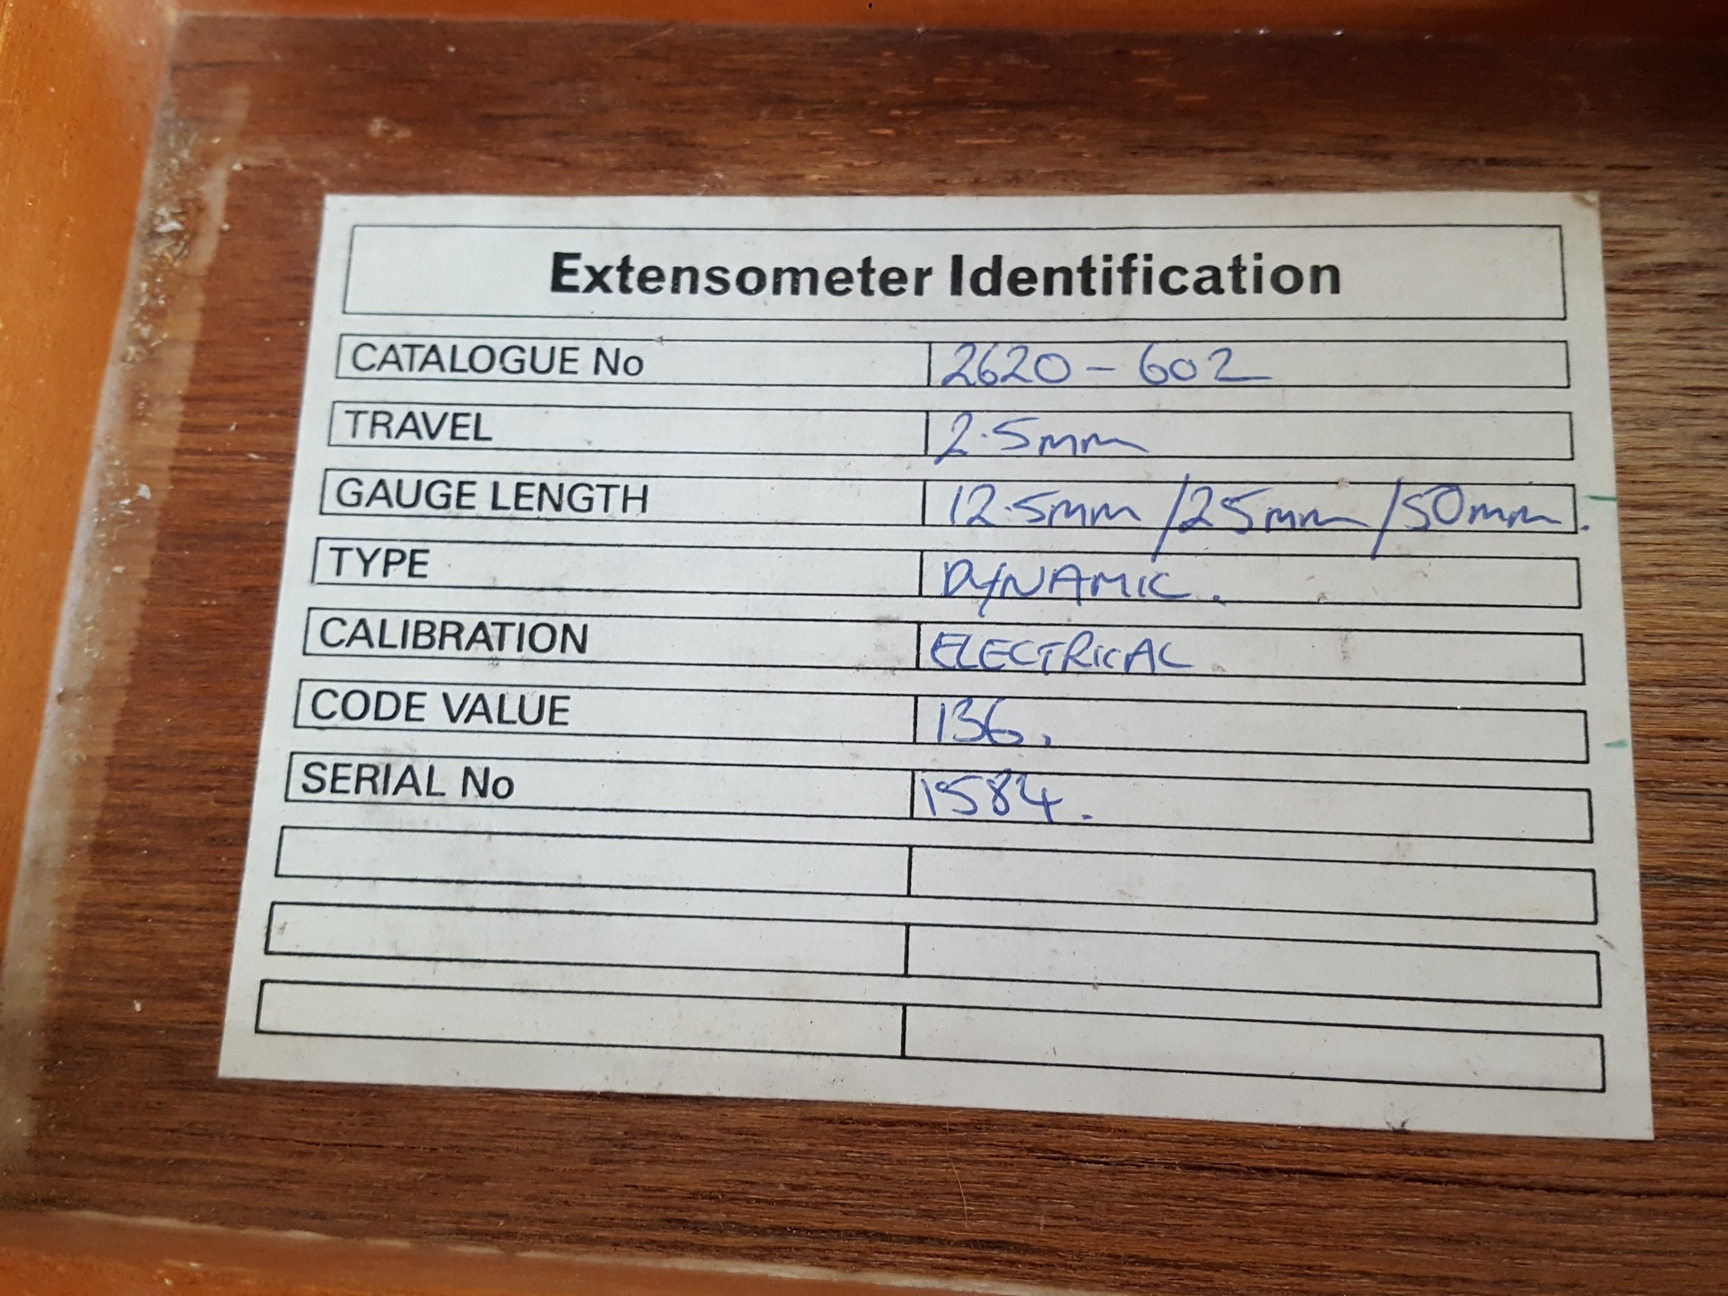 Extensometer Identification
CATALOGUE No 2620-602
TRAVEL 2.5mm
GAUGE LENGTH 12.5mm/25mm/50mm.
TYPE DYNAMIC.
CALIBRATION ELECTRICAL
CODE VALUE 136.
SERIAL No 1584.